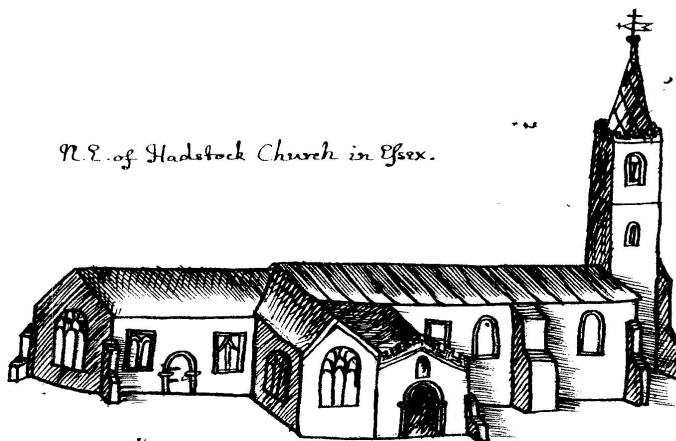 N.E. of Hadstock Church in Eſsex.